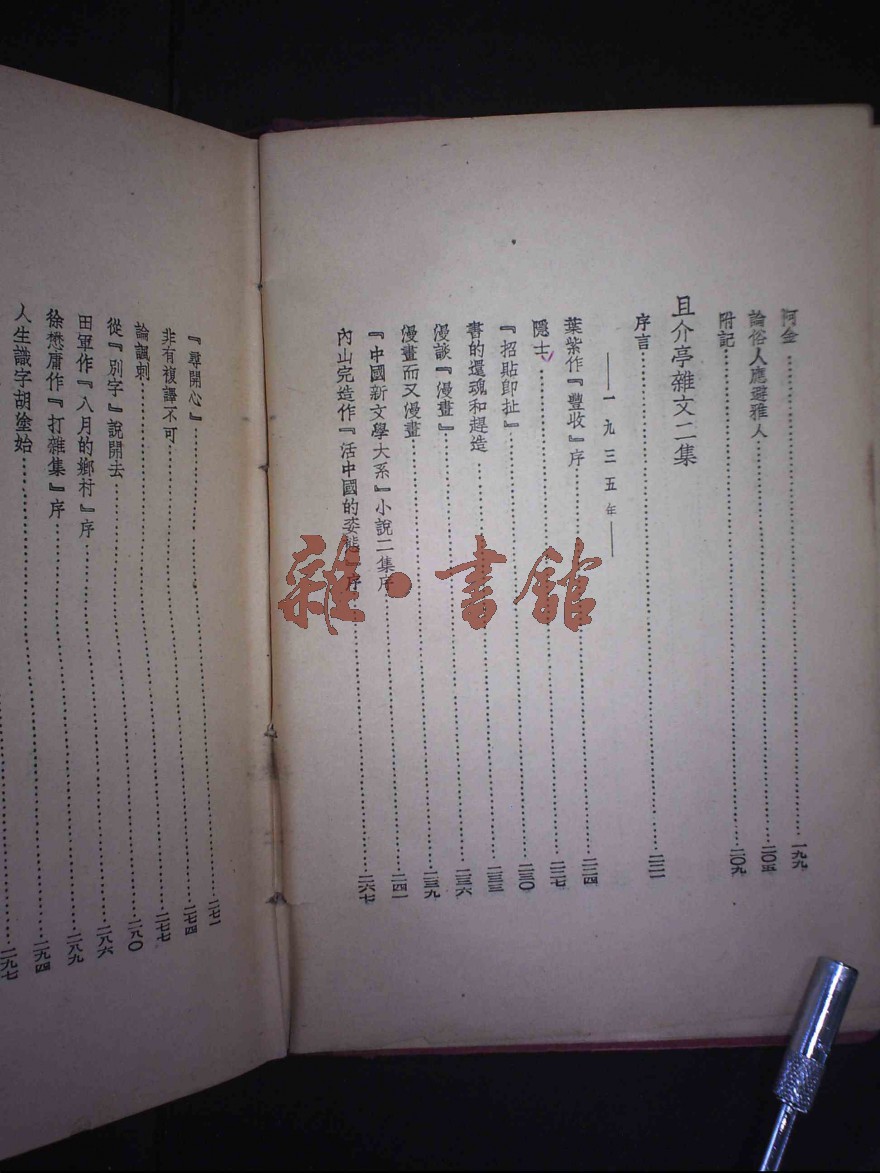 阿金……一九九
論俗人應避雅人……二〇五
附記……二〇九
且介亭雜文二集
序言……二二一
——一九三五年——
葉紫作『豐收』序……二二四
隱士……二二七
『招貼卽扯』……二三〇
書的還魂和趕造……二三三
漫談『漫畫』……二三六
漫畫而又漫畫……二三九
『中國新文學大系』小說二集序……二四一
內山完造作『活中國的姿態』序……二六七
『尋開心』……二七一
非有複譯不可……二七四
論諷刺……二七七
從『別字』說開去……二八〇
田軍作『八月的鄉村』序……二八六
徐懋庸作『打雜集』序……二八九
人生識字胡塗始……二九四
二九七
雜·書館